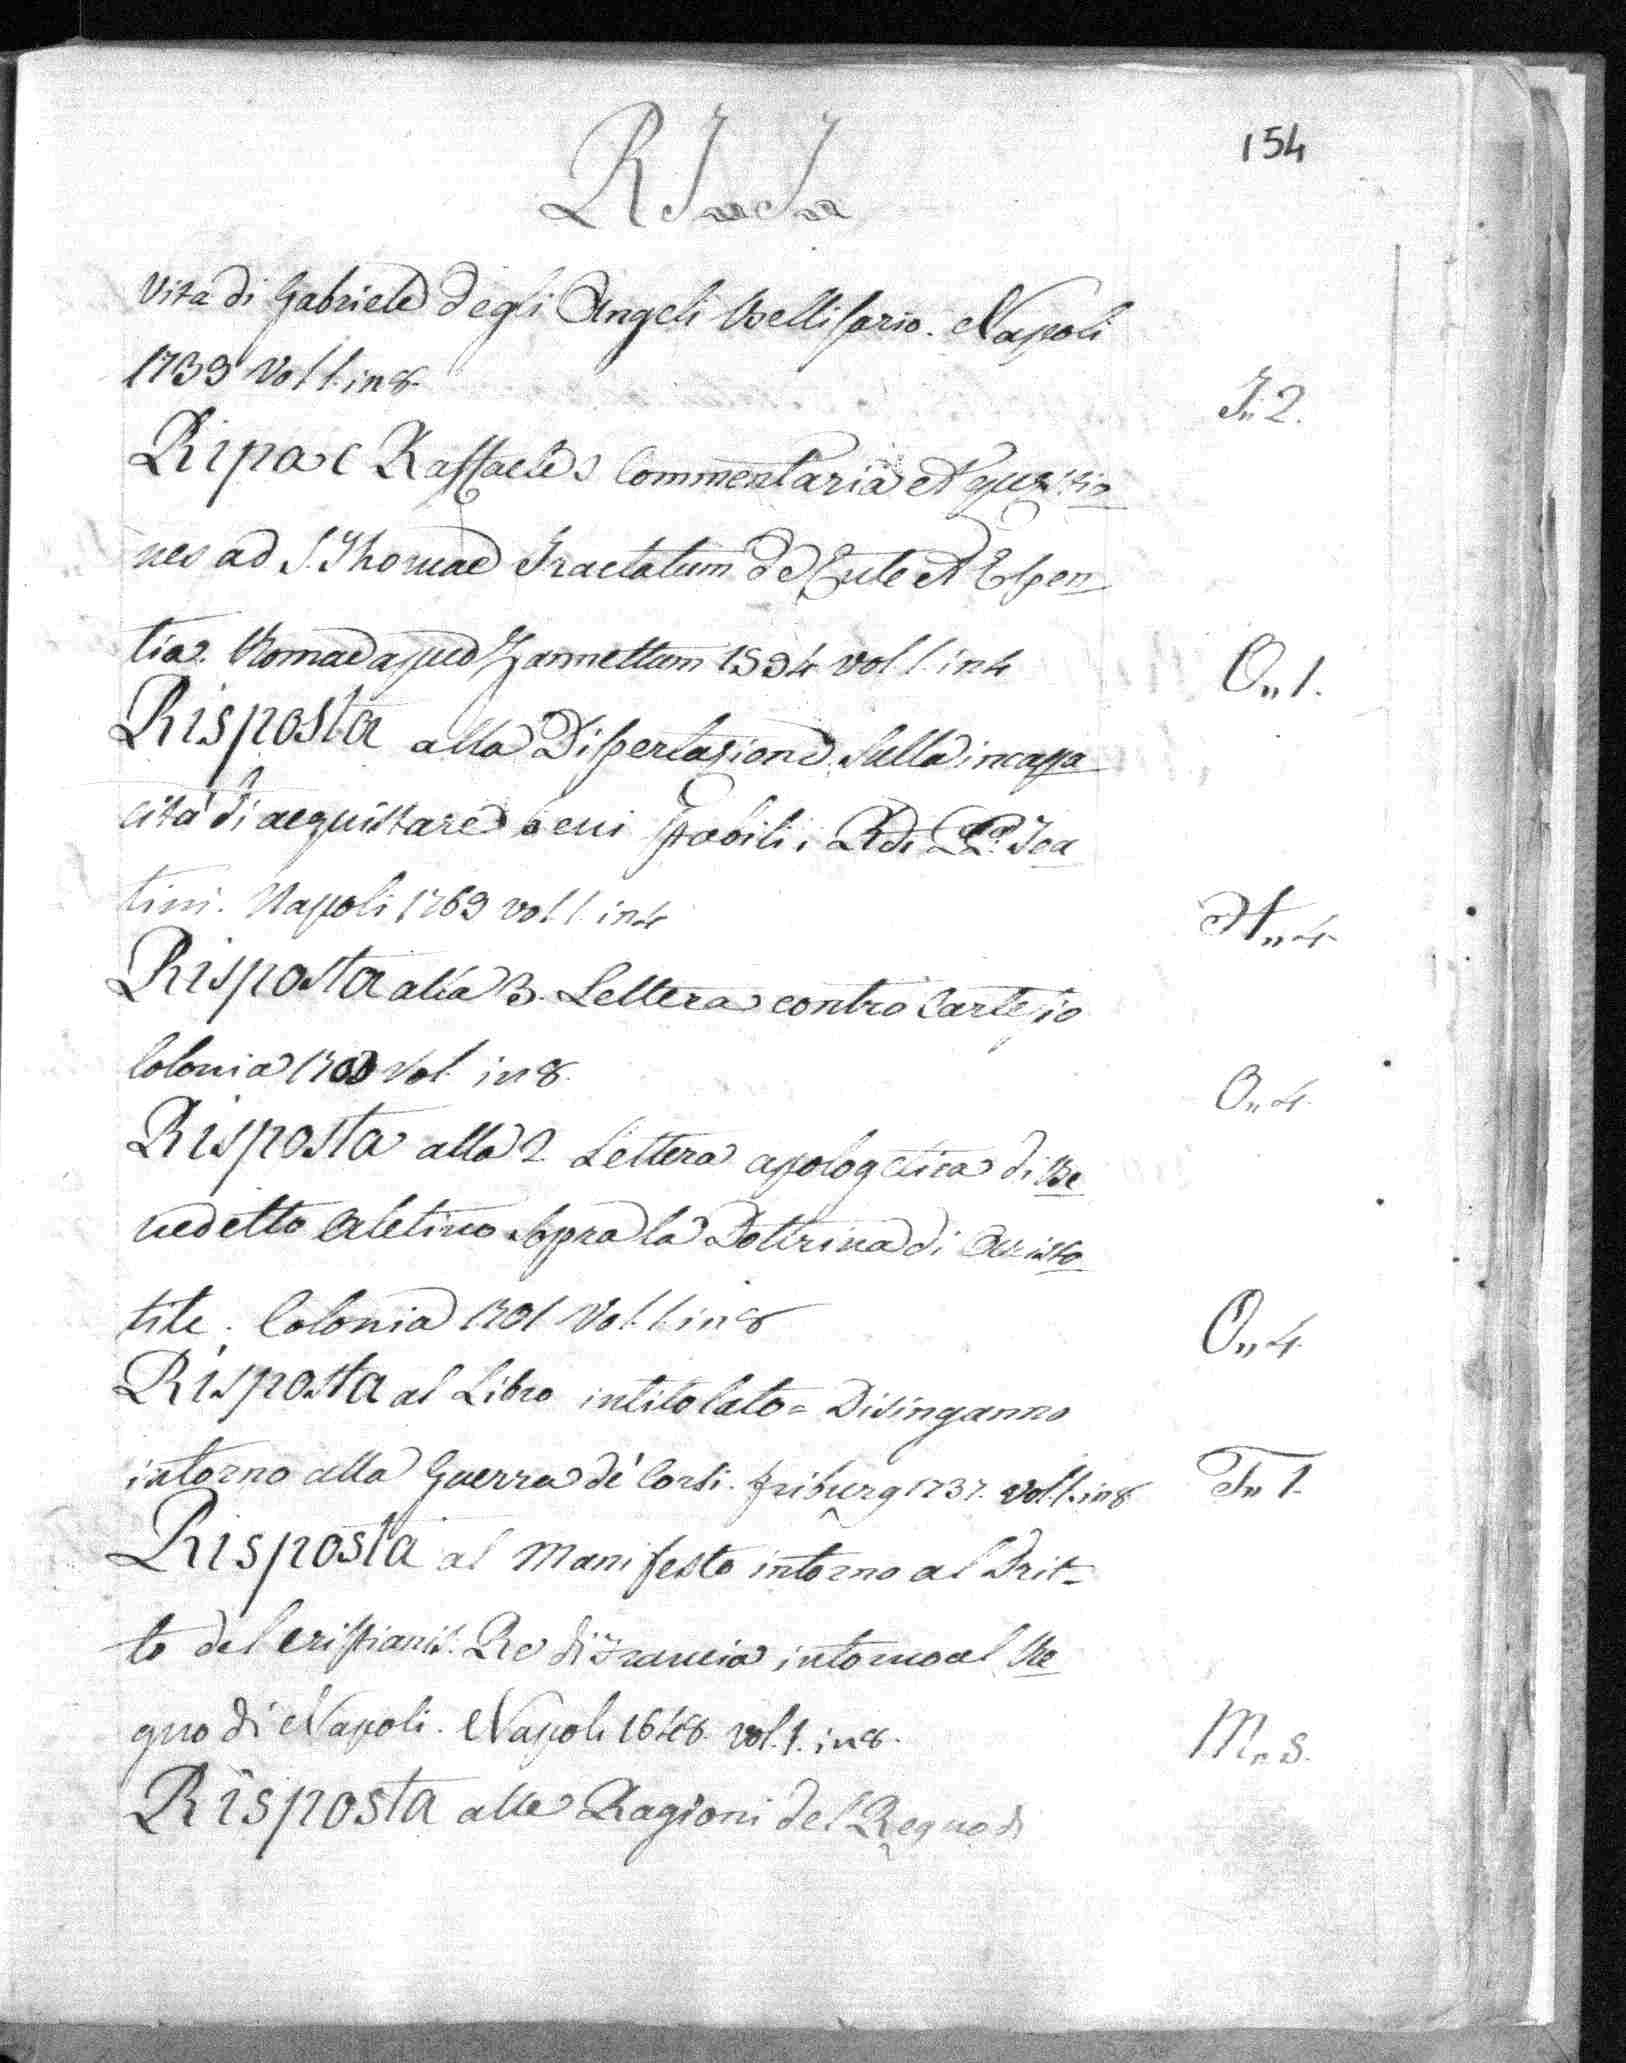 154
R
Vita di Gabriele degli Angeli Bellisario. Napoli
1739 Vol 1. in 8.
I n 2.
Ripa Raffaele Commentaria et quæstio
nes ad S. Thomae Tractatum De Ente et Essen
tia. Romae apud Zannettum 1594 vol 1. in 4
O n 1.
Risposta alla Dissertazione sulla incapa
cità di acquistare beni stabili, di PP. Tea
tini. Napoli 1769 vol 1. in 4
H n 4.
Risposta alla 3. Lettera contro Cartesio
Colonia Vol. in 8.
O n 4.
Risposta alla 2 Lettera apologetica di Be
nedetto Aletino sopra la Dottrina di Aristo
tile. Colonia 1701 Vol. 1. in 8
O n 4.
Risposta al Libro intitolato = Disinganno
intorno alla Guerra de' Corsi. Friburg 1737. vol. 1. in 8.
T n 1.
Risposta al Manifesto intorno al Drit=
to del Cristianis. Re di Francia intorno al Re
gno di Napoli. Napoli 1648. vol. 1. in 8.
M n 8.
Risposta alle Ragioni del Regno di